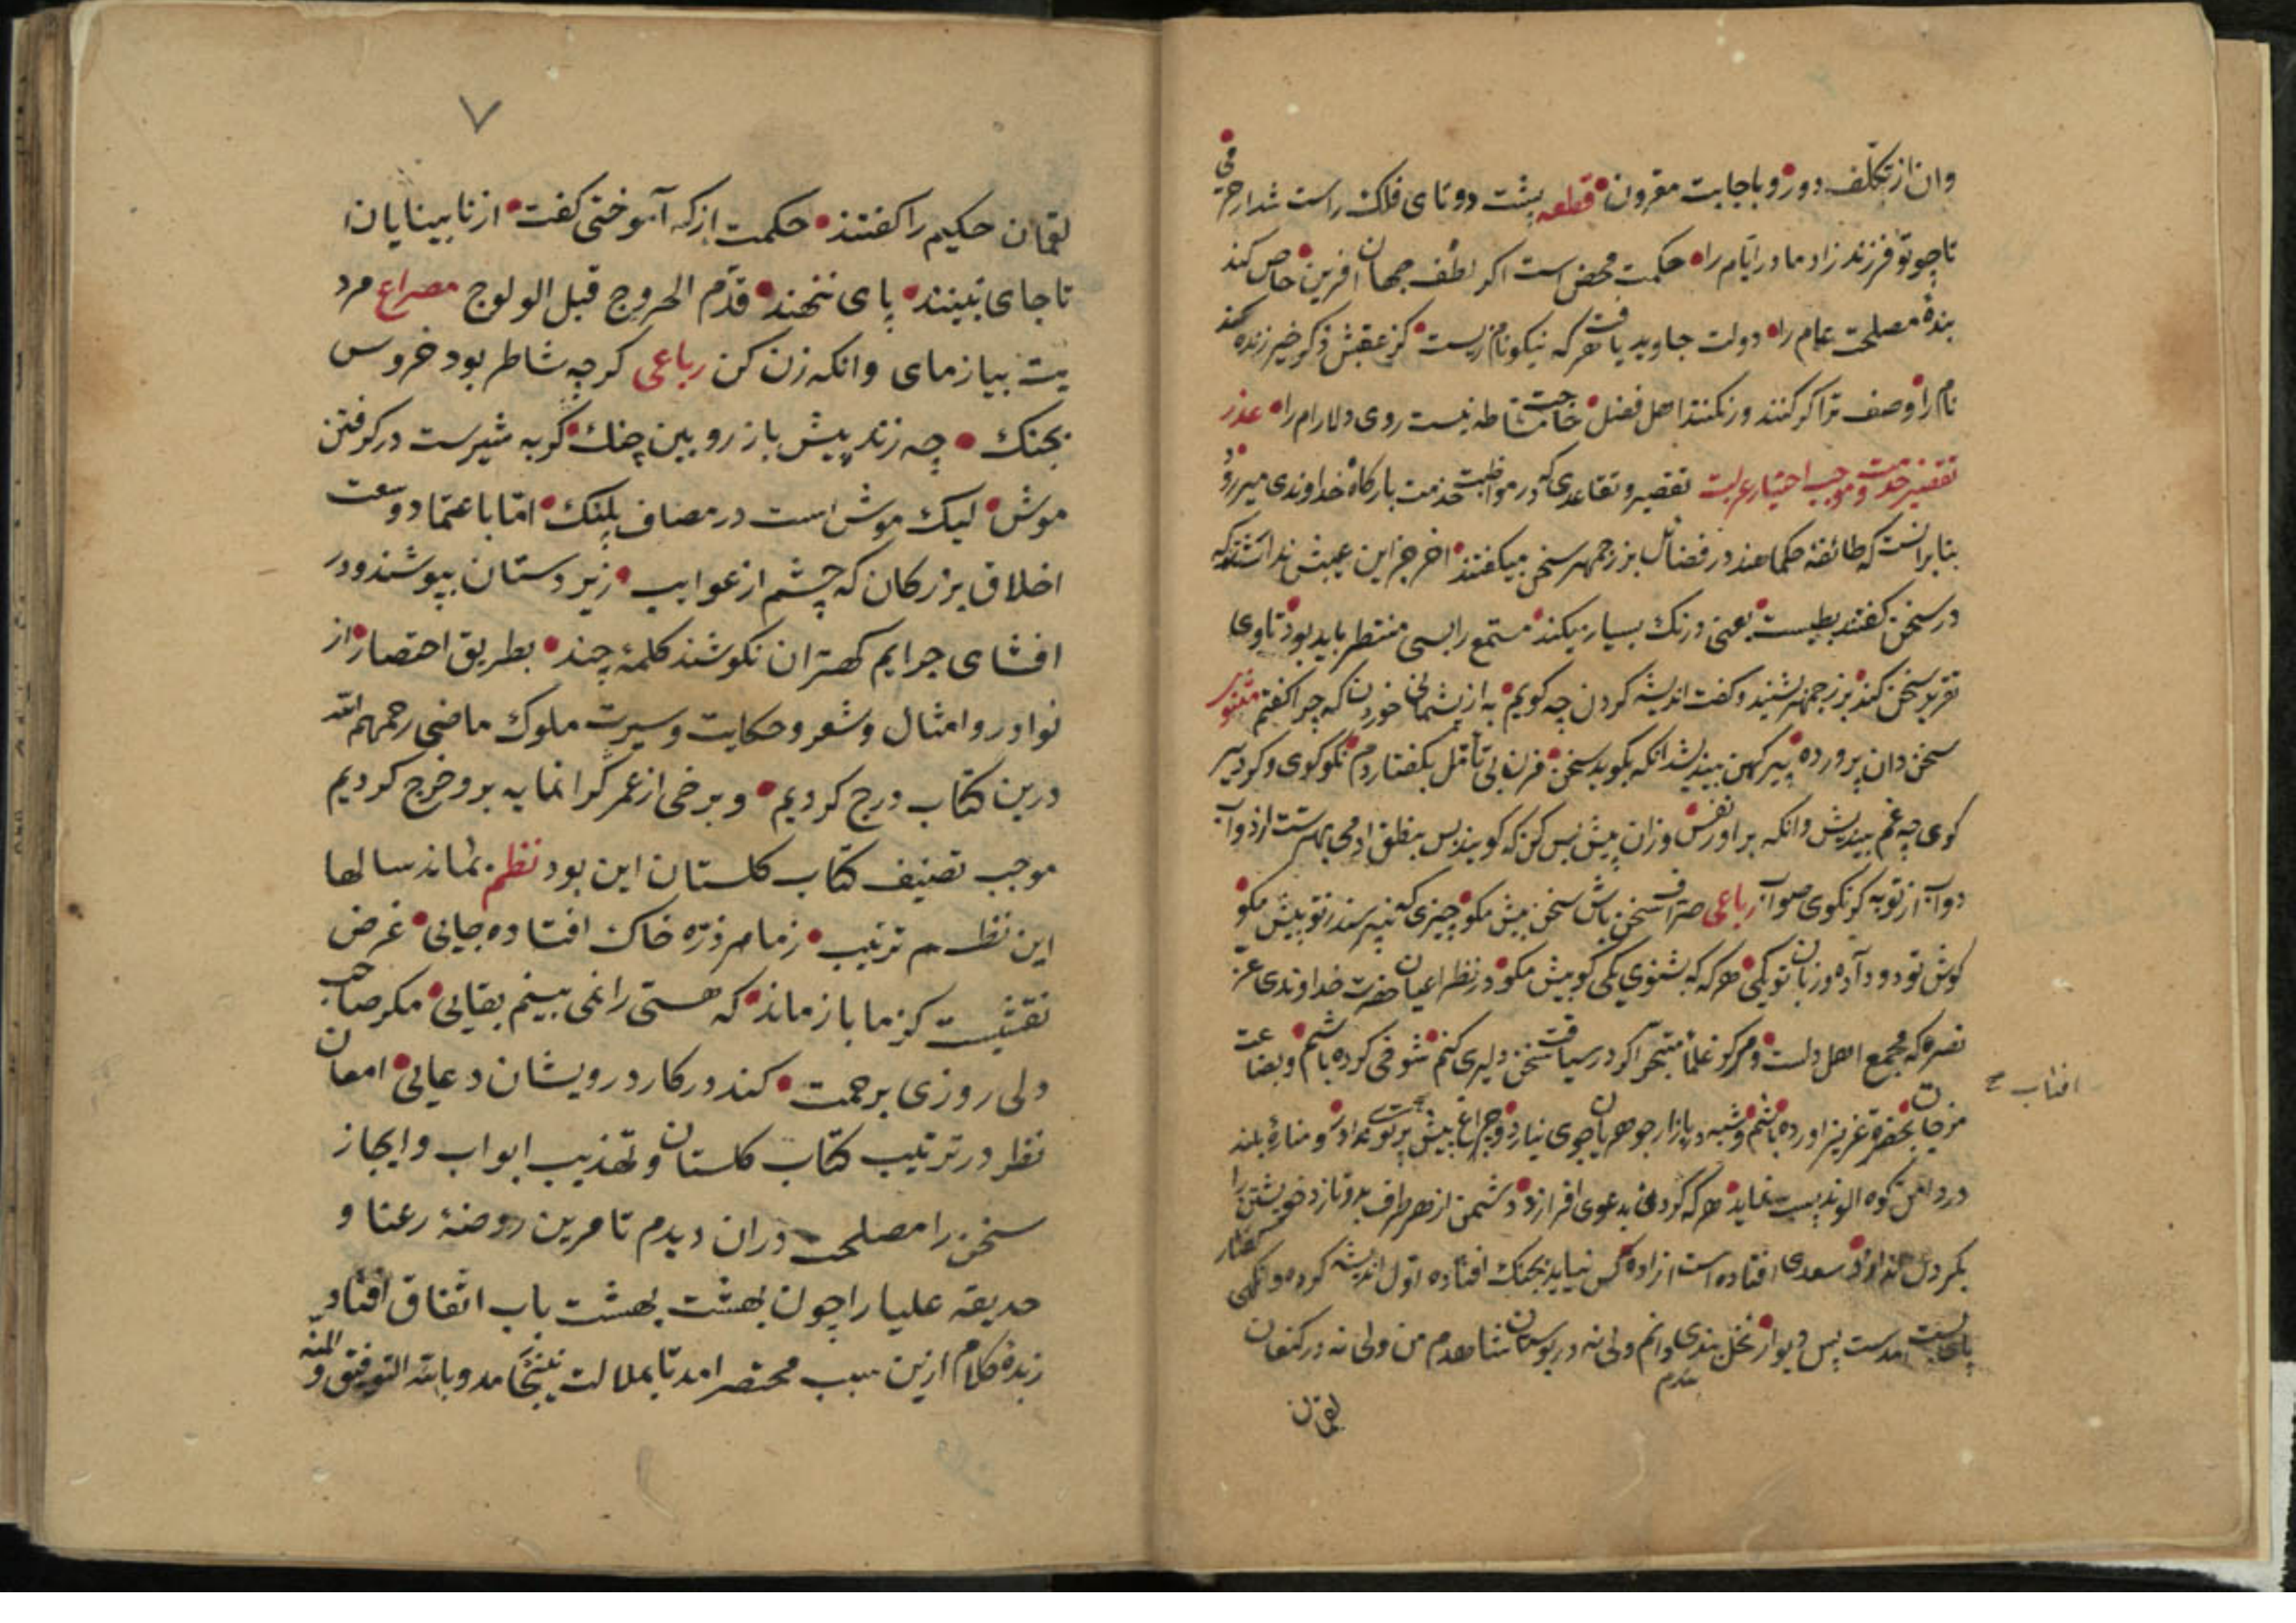 وان از تکلف دور و باجابت مقرون قطعه پشت دوتای فلک راست شد از خرمی
تا چو تو فرزند زاد مادر ایام را حکمت محض است اکر لطف جهان افرین خاص کند
بندهٔ مصلحت عام را دولت جاوید یافت هرکه نیکونام زیست کز عقبش ذکر خیر زنده کند
نام را وصف ترا کر کنند ور نکنند اهل فضل حاجت مشاطه نیست روی دلارام را عذر
تقصیر خدمت و موجب اختیار عزلت تقصیر و تقاعدی که در مواظبت خدمت بارکاه خداوندی میرود
بنابرانست که طائفهٔ حکماء هند در فضائل بزرجمهر سخن میکفتند اخر جز این عیبش ندانستند که
در سخن کفتن بطیست یعنی درنک بسیار میکند مستمع را بسی منتظر باید بود تا وی
تقریر سخن کند بزرجمهر بشنید و کفت اندیشه کردن چه کویم به از پشیمانی خوردن که چرا کفتم مثنوی
سخن دان پرورده پیر کهن بیندیشد انکه بکوید سخن مزن بی تأمل بکفتار دم نکو کوی و کر دیر
کوی چه غم بیندیش وانکه براور نفس وزان پیش بس کن که کویند بس بنطق ادمی بهترست از دواب
دواب از تو به کر نکوی صواب رباعی صراف سخن باش سخن بیش مکو چیزی که نپرسند تو از پیش مکو
کوش تو دو دادند و زبان تو یکی هرکه که بشنوی یکی کو بیش مکو در نظر اعیان حضرت خداوندی عز
نصره که مجمع اهل دلست و مرکز علماء متبحر اکر در سیاقت سخن دلیری کنم شوخی کرده باشم و بضاعت
مزجات بحضرة عزیز اورده باشم و شبه در بازار جوهریان جوی نیارد و چراغ پیش افتاب پرتوی ندارد و منارهٔ بلند
در دامن کوه الوند پست نماید هرکه کردن بدعوی افرازد دشمن از هر طرف برو تازد خویشتن را
بکردن اندازد سعدی افتاده است ازاده کس نیاید بجنک افتاده اول اندیشه کرده وانکهی کفتار
پای بست امدست پس دیوار نخل بندی دانم ولی نه در بوستان شاهدم من ولی نه در کنعان
لقمان
افتاب صح
۷
لقمان حکیم را کفتند حکمت از که آموختی کفت از نابینایان
تا جای نبینند پای ننهند قدّم الخروج قبل الولوج مصراع مرد
یت بیازمای وانکه زن کن رباعی کرچه شاطر بود خروس
بجنک چه زند پیش باز رویین چنک کربه شیرست در کرفتن
موش لیک موش است در مصاف پلنک امّا باعتماد وسعت
اخلاق بزرکان که چشم از عوایب زیردستان بپوشند و در
افشای جرایم کهتران نکوشند کلمهٔ چند بطریق اختصار از
نوادر و امثال و شعر و حکایت و سیرت ملوک ماضی رحمهم الله
درین کتاب درج کردیم و برخی از عمر کرانمایه برو خرج کردیم
موجب تصنیف کتاب کلستان این بود نظم بماند سالها
این نظم ترتیب زما هر ذرّه خاک افتاده جایی غرض
نقشیست کز ما باز ماند که هستی را نمی بینم بقایی مکر صاحب
دلی روزی برحمت کند در کار درویشان دعایی امعان
نظر در ترتیب کتاب کلستان و تهذیب ابواب و ایجاز
سخن را مصلحت دران دیدم تا مرین روضهٔ رعنا و
حدیقه علیا را چون بهشت بهشت باب اتفاق افتاد
زبدهٔ کلام ازین سبب مختصر امد تا بملالت نینجامد و بالله التوفیق والمنه